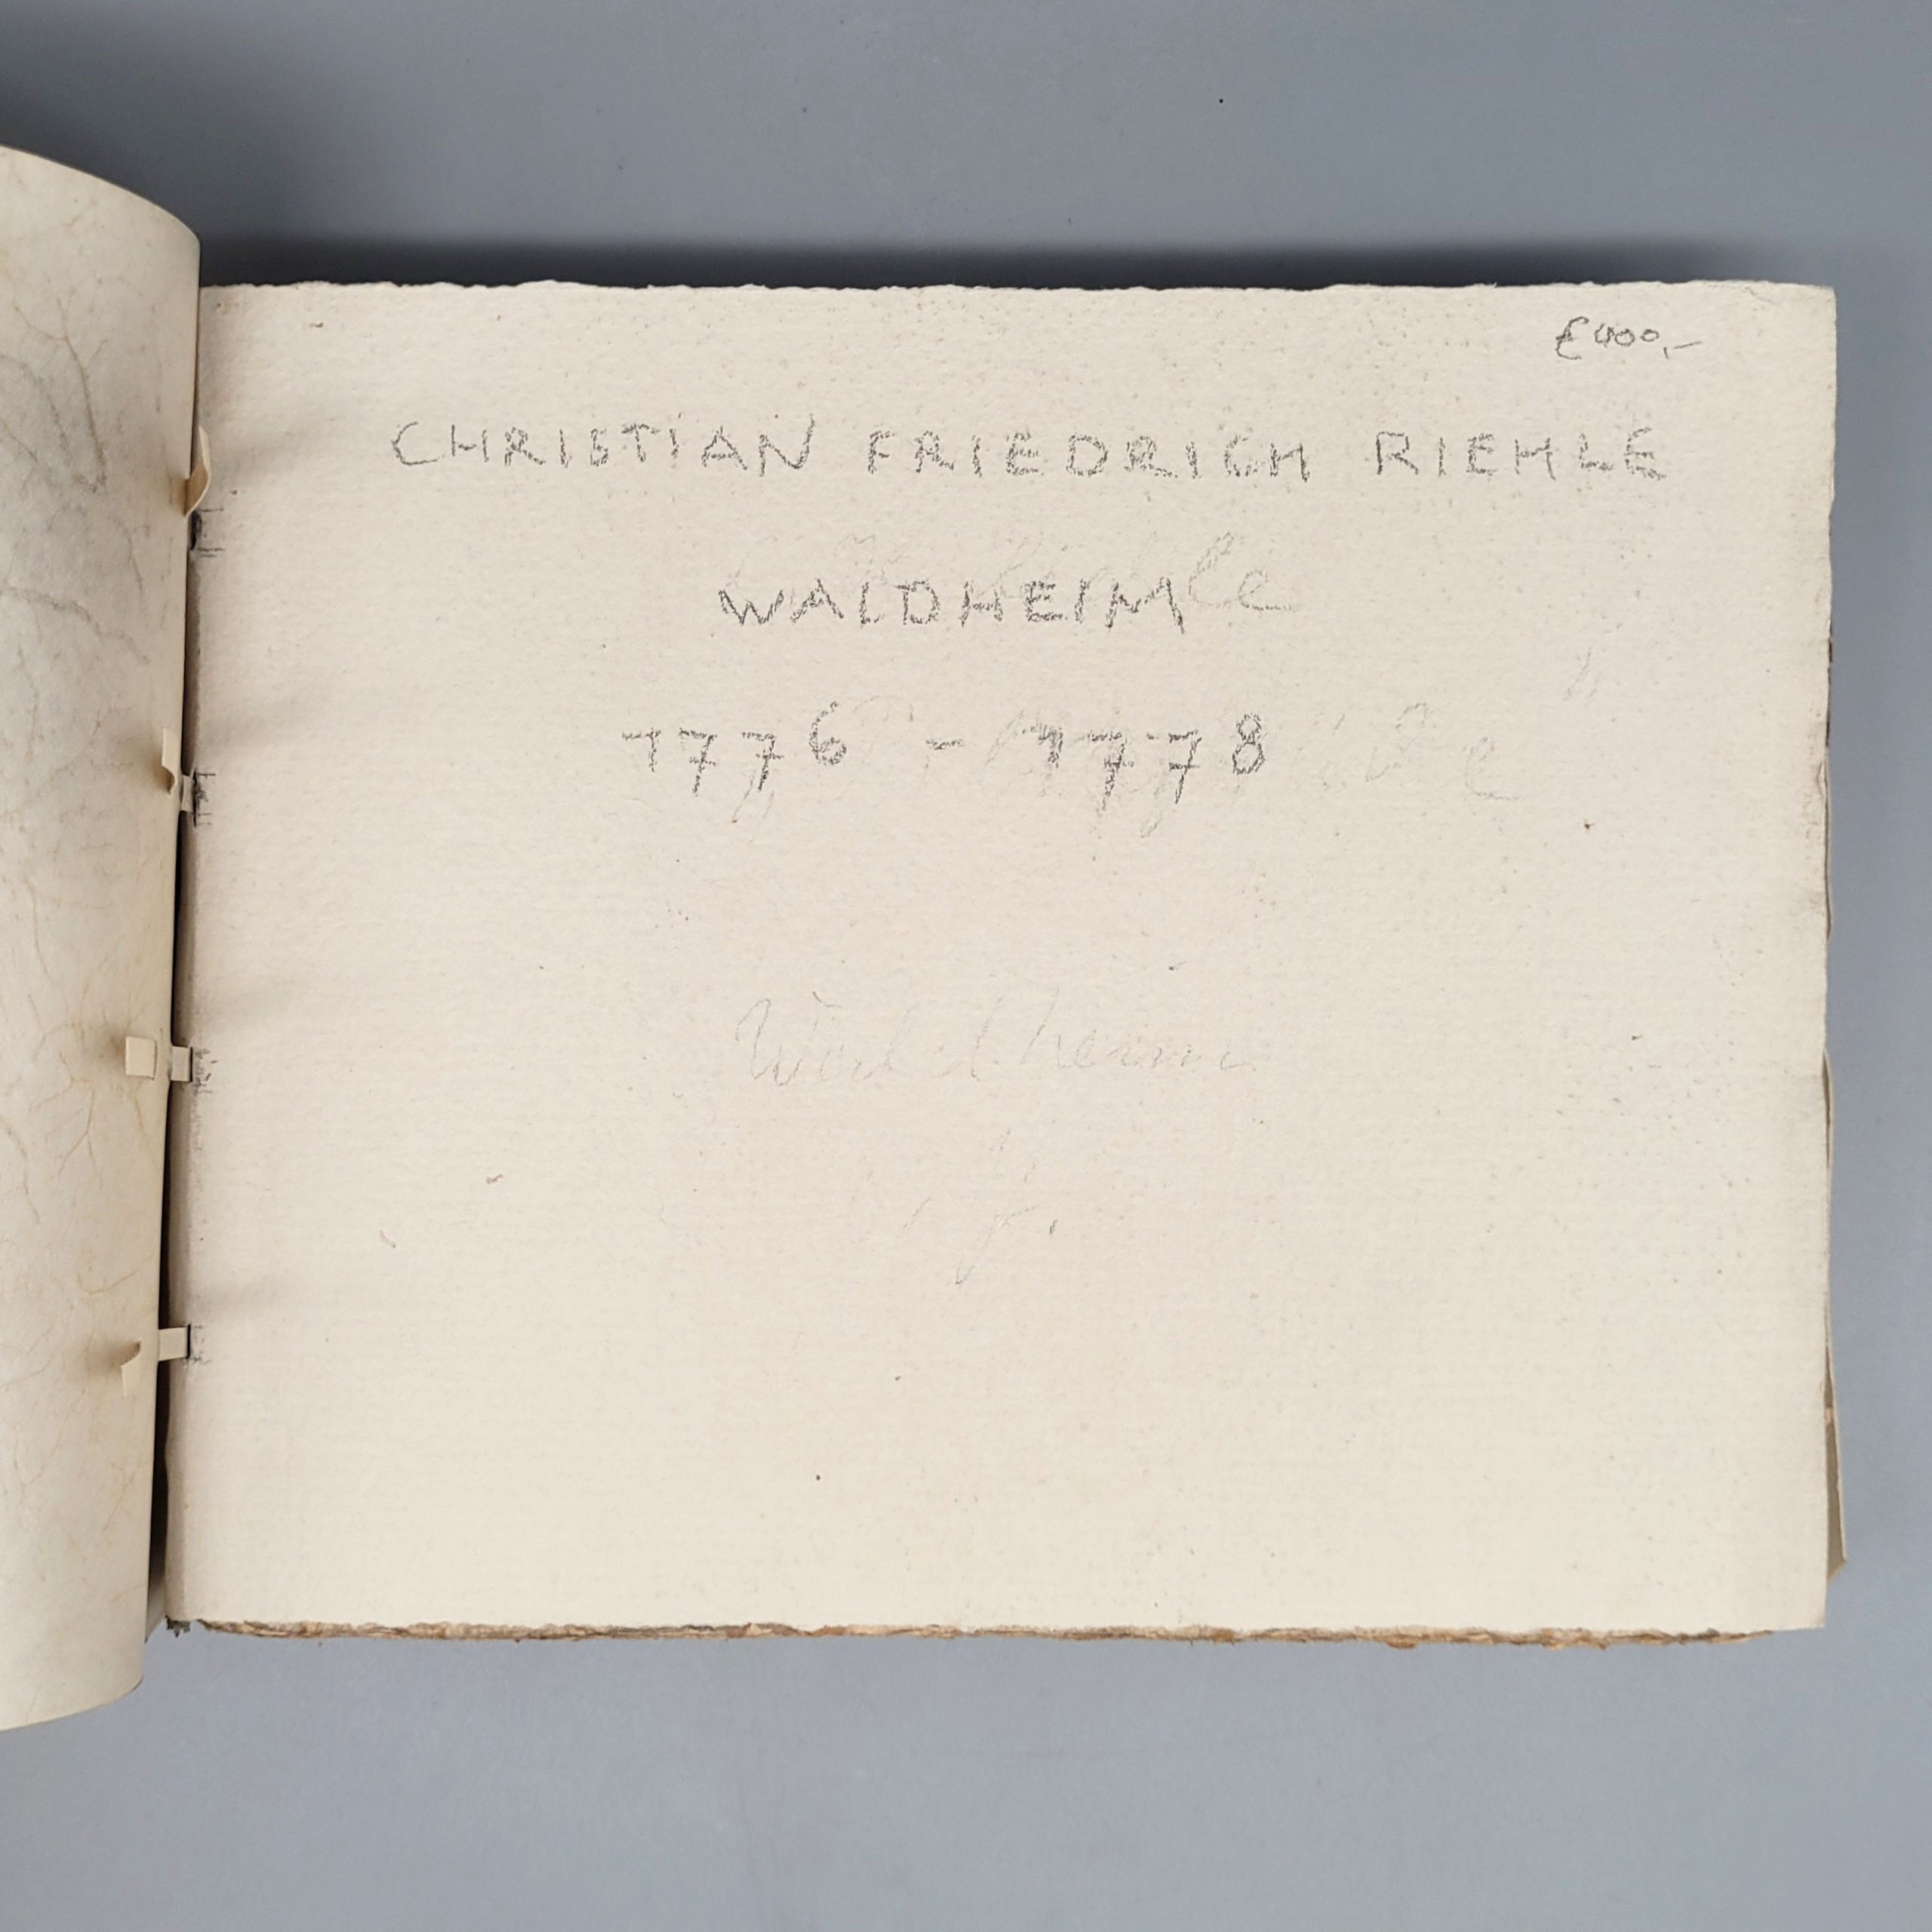 €400,-
CHRISTIAN FRIEDRICH RIEHLE
WALDHEIM
1776 - 1778
Waldheim